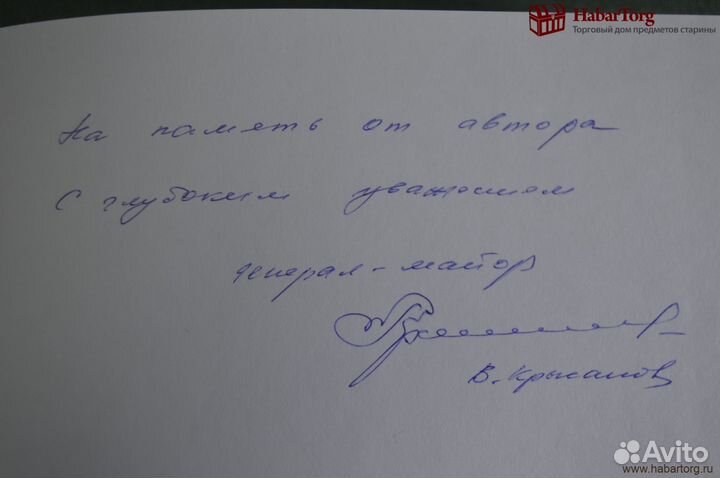 HabarTorg
Торговый дом предметов старины
На память от автора
С глубоким уважением
генерал-майор
В. Крысанов
Avito
www.habartorg.ru